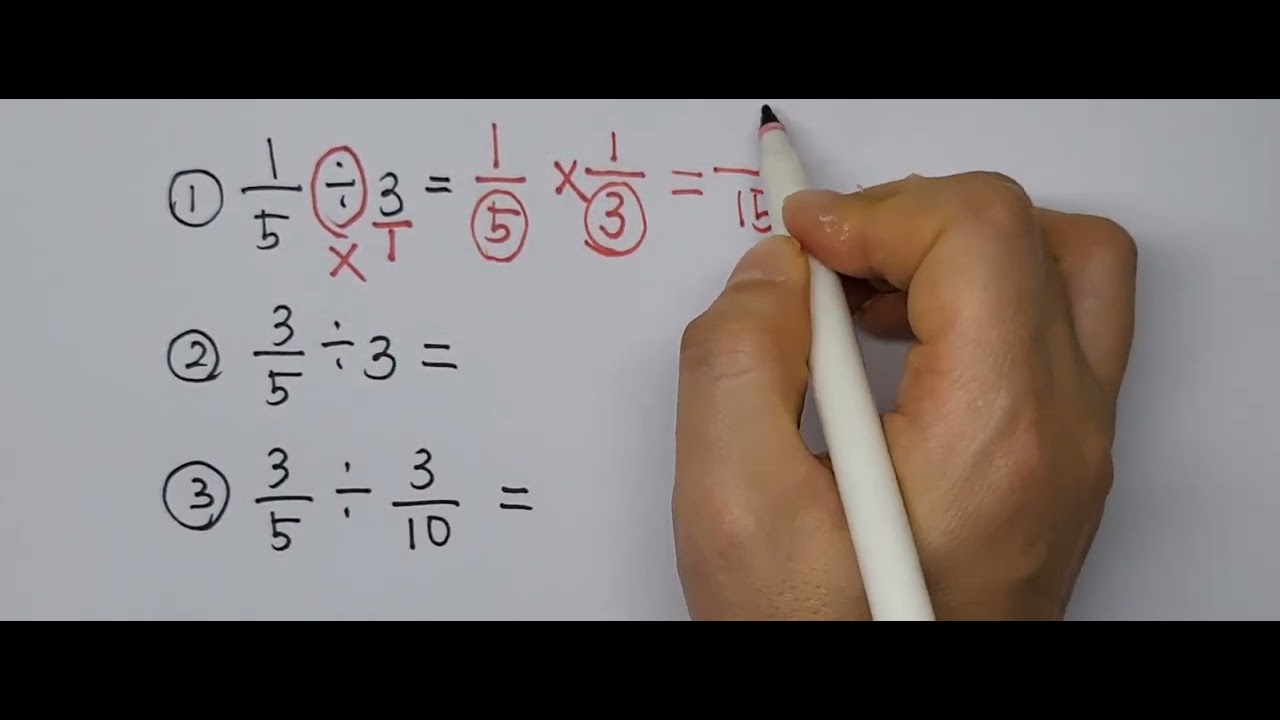 ① 1/5 ÷ 3/1 = 1/5 × 1/3 = /15
×
② 3/5 ÷ 3 =
③ 3/5 ÷ 3/10 =